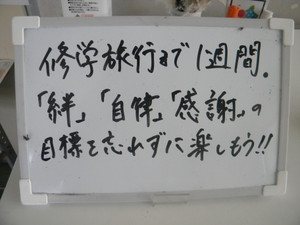 修学旅行まで1週間.
「絆」「自律」「感謝」の
目標を忘れずに楽しもう!!